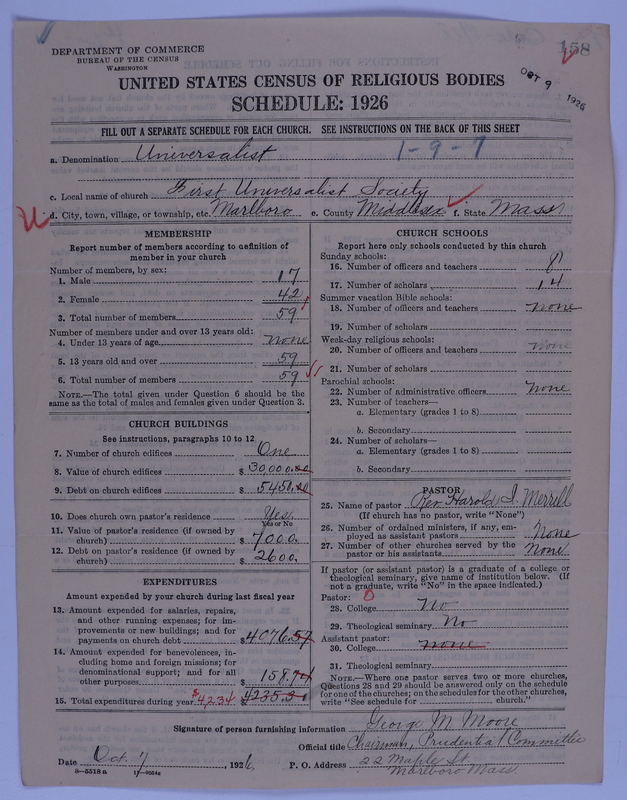 158
DEPARTMENT OF COMMERCE
BUREAU OF THE CENSUS
WASHINGTON
OCT 9 1926
UNITED STATES CENSUS OF RELIGIOUS BODIES
SCHEDULE: 1926
FILL OUT A SEPARATE SCHEDULE FOR EACH CHURCH. SEE INSTRUCTIONS ON THE BACK OF THIS SHEET
a. Denomination Universalist 1-9-7
c. Local name of church First Universalist Society
d. City, town, village, or township, etc. Marlboro e. County Middlesex f. State Mass
MEMBERSHIP
Report number of members according to definition of
member in your church
Number of members, by sex:
1. Male 17
2. Female 42
3. Total number of members 59
Number of members under and over 13 years old:
4. Under 13 years of age none
5. 13 years old and over 59
6. Total number of members 59
NOTE.—The total given under Question 6 should be the
same as the total of males and females given under Question 3.
CHURCH BUILDINGS
See instructions, paragraphs 10 to 12
7. Number of church edifices One
8. Value of church edifices $30,000.00
9. Debt on church edifices $5450.00
10. Does church own pastor's residence Yes
Yes or No
11. Value of pastor's residence (if owned by
church) $7000.
12. Debt on pastor's residence (if owned by
church) $2600.
EXPENDITURES
Amount expended by your church during last fiscal year
13. Amount expended for salaries, repairs,
and other running expenses; for im-
provements or new buildings; and for
payments on church debt $4076.57
14. Amount expended for benevolences, in-
cluding home and foreign missions; for
denominational support; and for all
other purposes $158.74
15. Total expenditures during year $4234 $4235.30
CHURCH SCHOOLS
Report here only schools conducted by this church
Sunday schools:
16. Number of officers and teachers 8
17. Number of scholars 14
Summer vacation Bible schools:
18. Number of officers and teachers none
19. Number of scholars
Week-day religious schools:
20. Number of officers and teachers none
21. Number of scholars
Parochial schools:
22. Number of administrative officers none
23. Number of teachers—
a. Elementary (grades 1 to 8)
b. Secondary
24. Number of scholars—
a. Elementary (grades 1 to 8)
b. Secondary
PASTOR
25. Name of pastor Rev. Harold I. Merrill
(If church has no pastor, write "None")
26. Number of ordained ministers, if any, em-
ployed as assistant pastors None
27. Number of other churches served by the
pastor or his assistants None
If pastor (or assistant pastor) is a graduate of a college or
theological seminary, give name of institution below. (If
not a graduate, write "No" in the space indicated.)
Pastor: 0
28. College No
29. Theological seminary No
Assistant pastor:
30. College none
31. Theological seminary
NOTE.—Where one pastor serves two or more churches,
Questions 28 and 29 should be answered only on the schedule
for one of the churches; on the schedules for the other churches,
write "See schedule for church."
Signature of person furnishing information George M. Moore
Official title Chairman, Prudential Committee
Date Oct. 7, 1926 P. O. Address 22 Maple St
Marlboro Mass.
8—5518 a